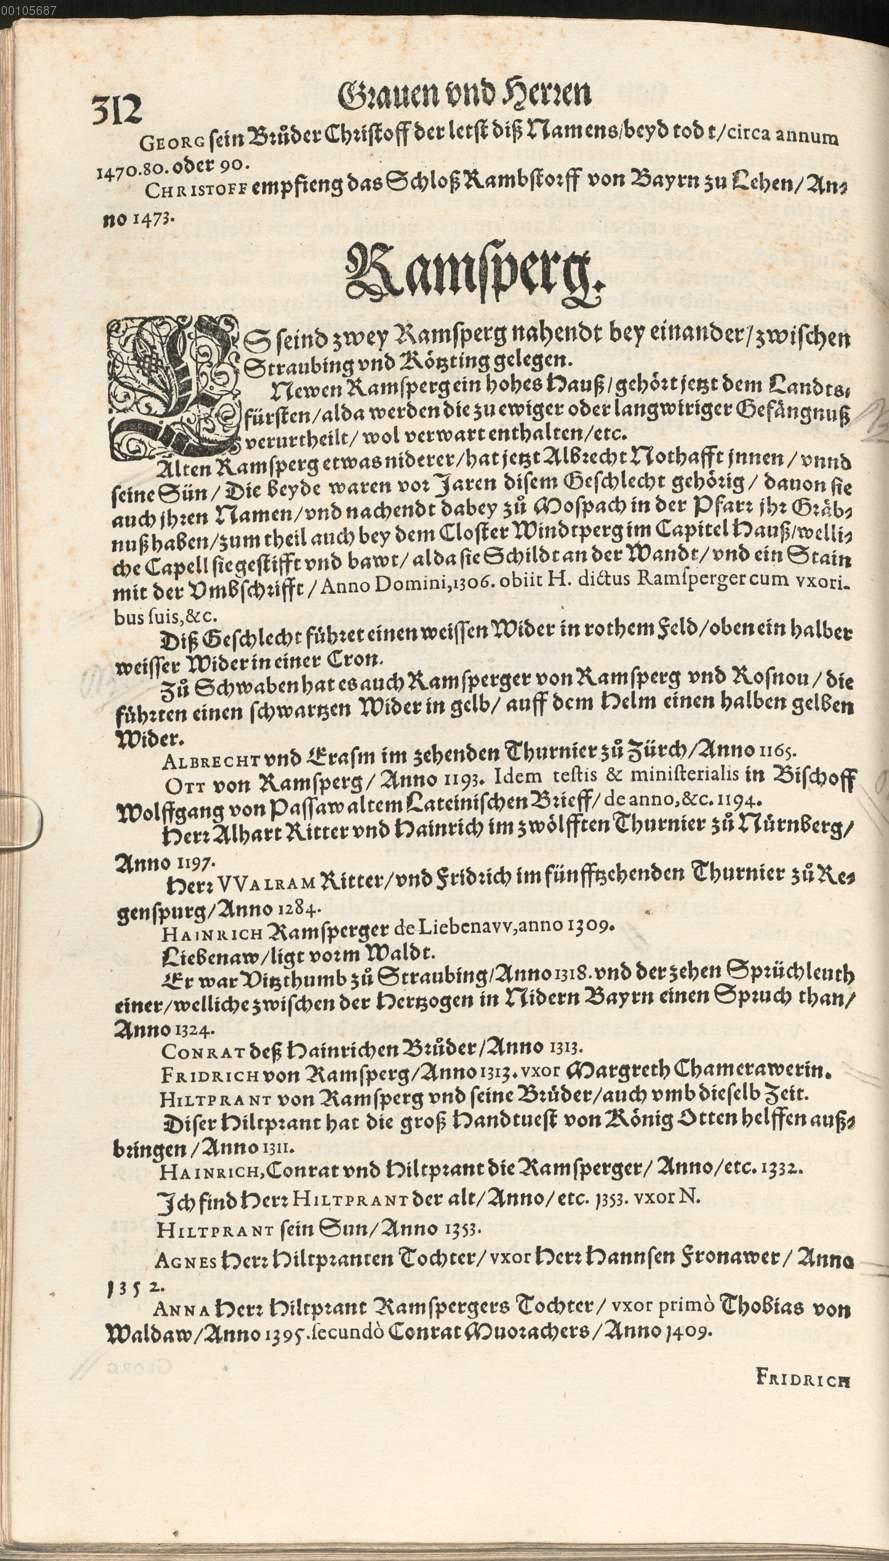 00105687
312 Grauen vnd Herren
GEORG sein Brůder Christoff der letst diß Namens/beyd todt/circa annum
1470.80. oder 90.
CHRISTOFF empfieng das Schloß Rambstorff von Bayrn zu Lehen/An-
no 1473.
Ramsperg.
ES seind zwey Ramsperg nahendt bey einander/zwischen
Straubing vnd Kötzting gelegen.
Newen Ramsperg ein hohes Hauß/gehört jetzt dem Landts-
fürsten/alda werden die zu ewiger oder langwiriger Gefängnuß
verurtheilt/wol verwart enthalten/etc.
Alten Ramsperg etwas niderer/hat jetzt Albrecht Nothafft jnnen/vnnd
seine Sün/Die beyde waren vor Jaren disem Geschlecht gehörig/dauon sie
auch jhren Namen/vnd nachendt dabey zů Mospach in der Pfarr jhr Gräb-
nuß haben/zum theil auch bey dem Closter Windtperg im Capitel Hauß/welli-
che Capell sie gestifft vnd bawt/alda sie Schildt an der Wandt/vnd ein Stain
mit der Vmbschrifft/Anno Domini,1306. obiit H. dictus Ramsperger cum vxori-
bus suis,&c.
Diß Geschlecht führet einen weissen Wider in rothem Feld/oben ein halber
weisser Wider in einer Cron.
Zů Schwaben hat es auch Ramsperger von Ramsperg vnd Rosnou/die
führten einen schwartzen Wider in gelb/auff dem Helm einen halben gelben
Wider.
ALBRECHT vnd Erasm im zehenden Thurnier zů Zürch/Anno 1165.
OTT von Ramsperg/Anno 1193. Idem testis & ministerialis in Bischoff
Wolffgang von Passaw altem Lateinischen Brieff/de anno,&c.1194.
Herr Alhart Ritter vnd Hainrich im zwölfften Thurnier zů Nürnberg/
Anno 1197.
Herr VVALRAM Ritter/vnd Fridrich im fünfftzehenden Thurnier zů Re-
genspurg/Anno 1284.
HAINRICH Ramsperger de Liebenavv,anno 1309.
Liebenaw/ligt vorm Waldt.
Er war Vitzthumb zů Straubing/Anno 1318.vnd der zehen Sprüchleuth
einer/welliche zwischen der Hertzogen in Nidern Bayrn einen Spruch than/
Anno 1324.
CONRAT deß Hainrichen Brůder/Anno 1313.
FRIDRICH von Ramsperg/Anno 1313.vxor Margreth Chamerawerin.
HILTPRANT von Ramsperg vnd seine Brüder/auch vmb dieselb Zeit.
Diser Hiltprant hat die groß Handtuest von König Otten helffen auß-
bringen/Anno 1311.
HAINRICH,Conrat vnd Hiltprant die Ramsperger/Anno/etc.1332.
Ich find Herr HILTPRANT der alt/Anno/etc. 1353. vxor N.
HILTPRANT sein Sun/Anno 1353.
AGNES Herr Hiltpranten Tochter/vxor Herr Hannsen Fronawer/Anno
1352.
ANNA Herr Hiltprant Ramspergers Tochter/vxor primò Thobias von
Waldaw/Anno 1395.secundò Conrat Muorachers/Anno 1409.
FRIDRICH